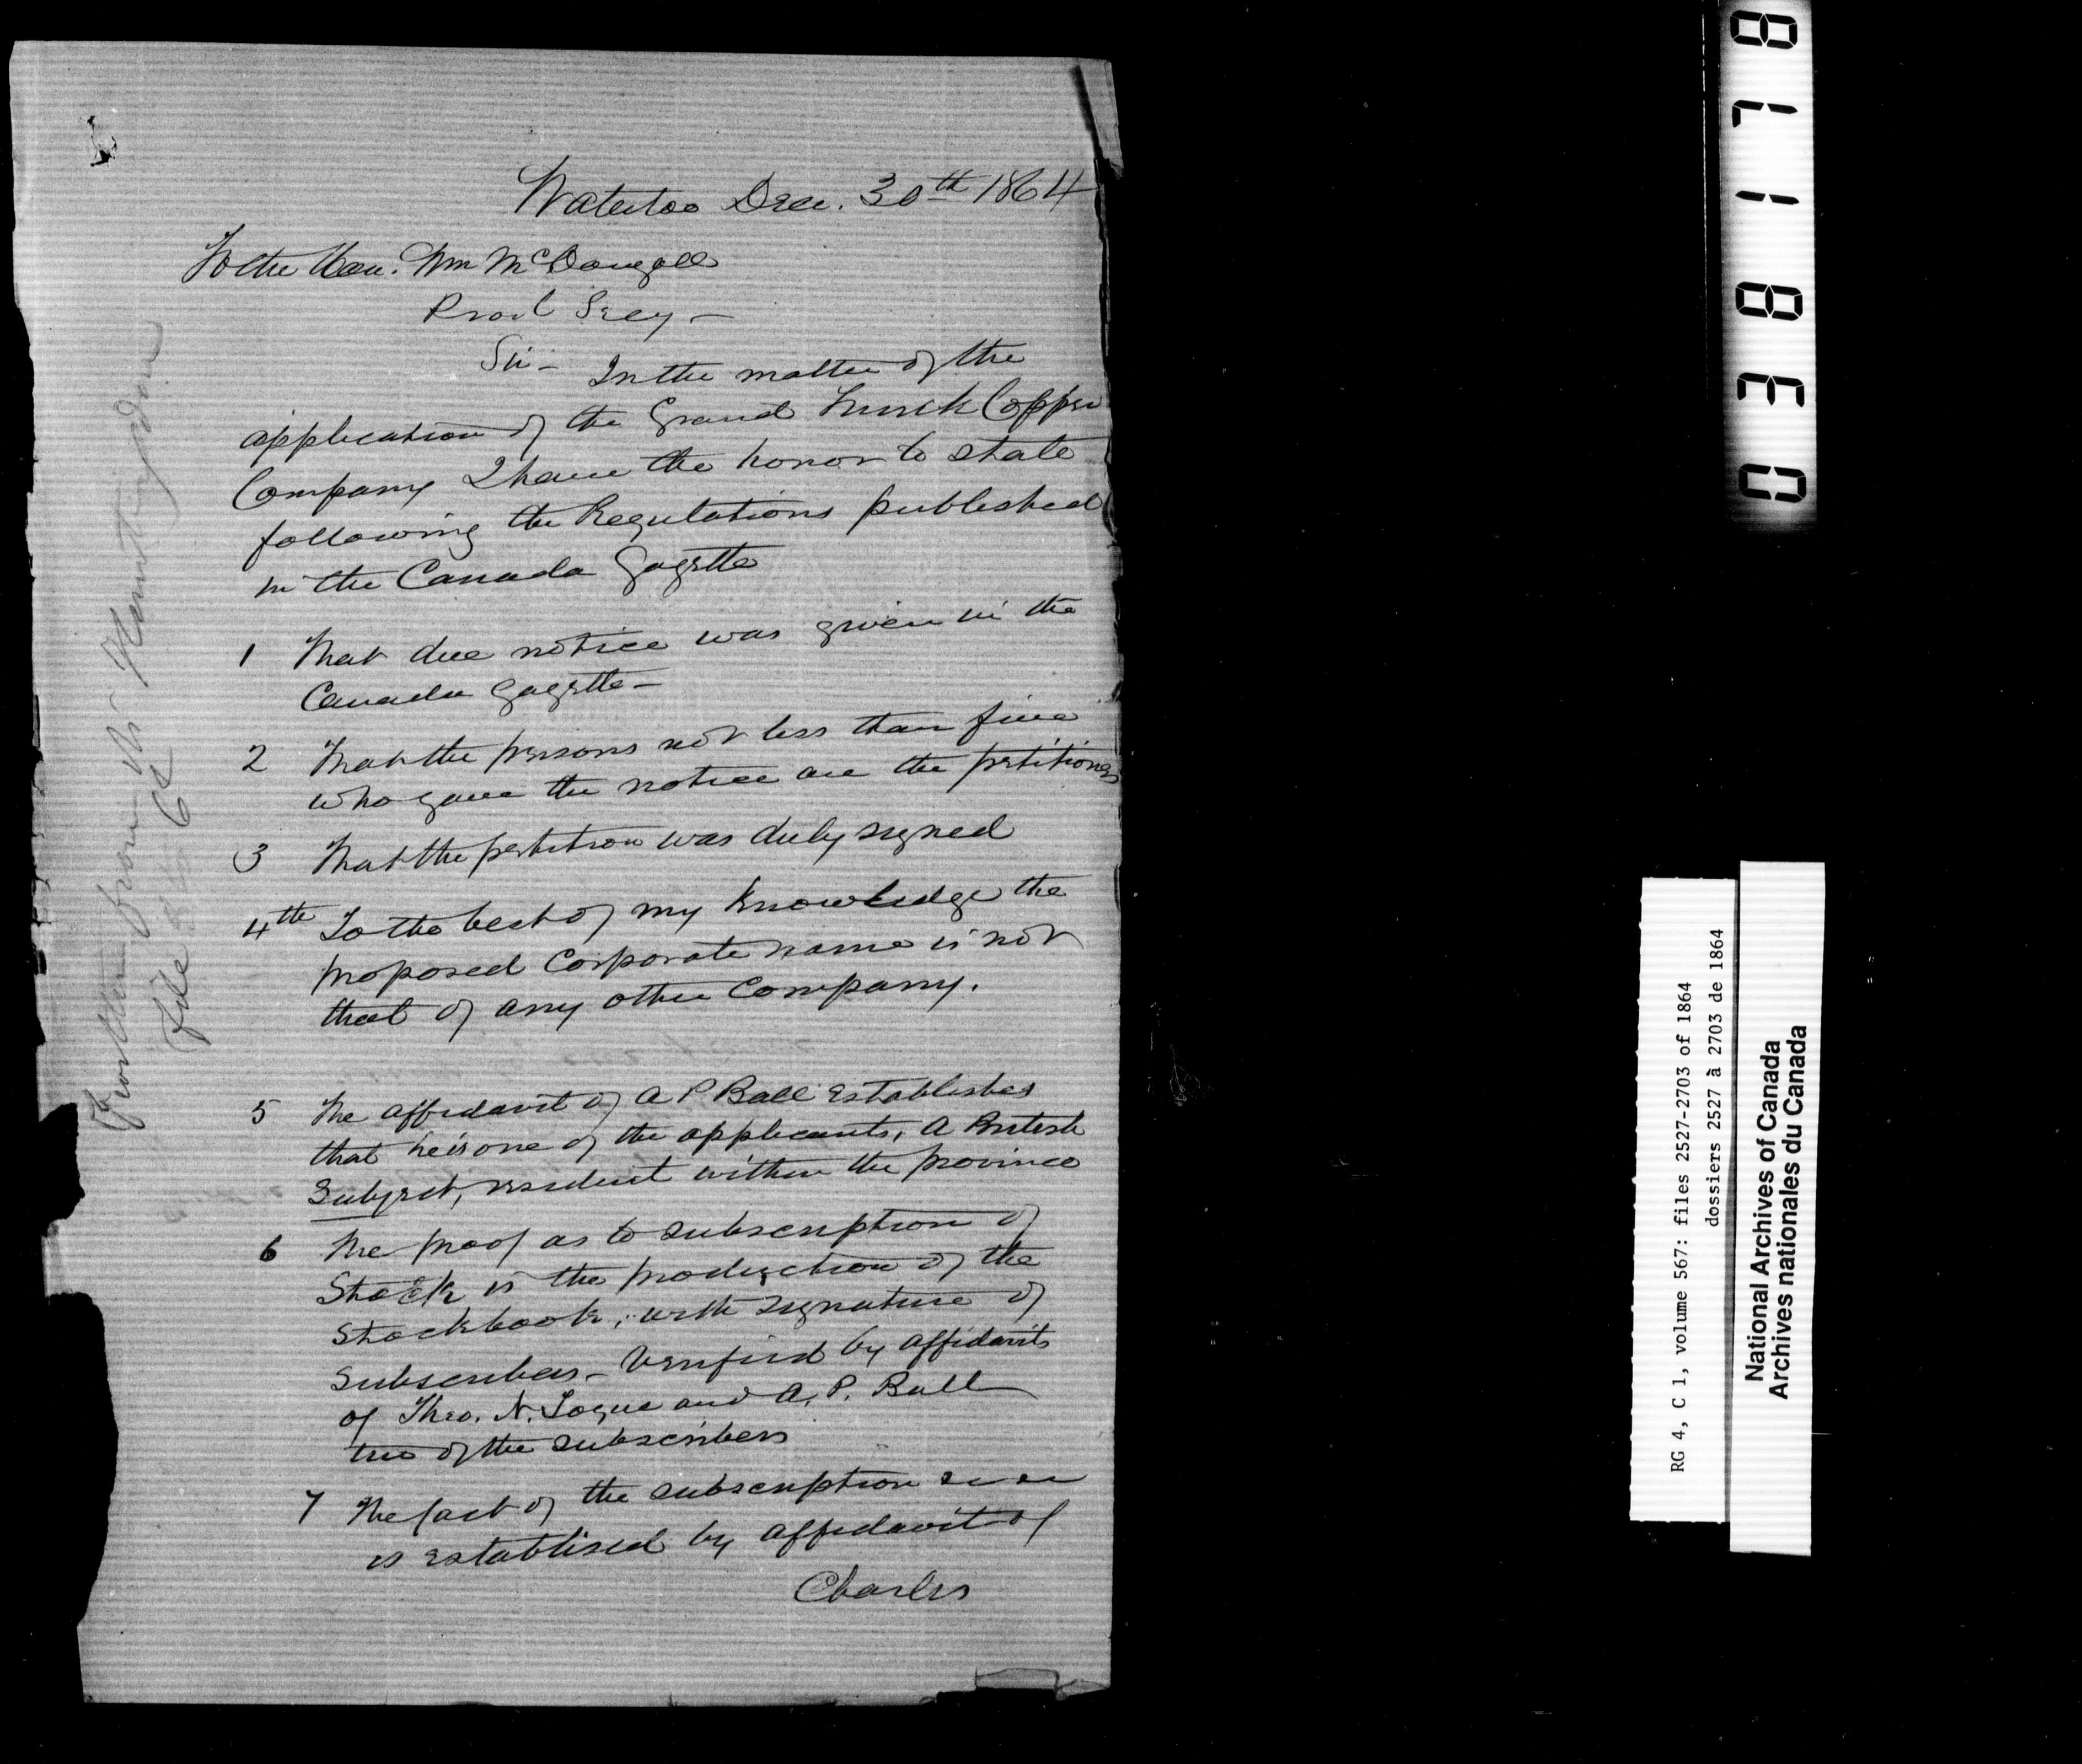 Waterloo Dec. 30th 1864
To the Hon. Wm McDougall
Provl Secy -
Sir - In the matter of the
application of the Grand Trunk Copper
Company I have the honor to state
following the Regulations published
in the Canada Gazette
1 That due notice was given in the
Canada Gazette -
2 That the persons not less than five
who gave the notice are the petitioners
3 That the petition was duly signed
4th To the best of my knowledge the
proposed Corporate name is not
that of any other Company.
5 The affidavit of A P Ball establishes
that he is one of the applicants, a British
Subject, resident within the province
6 The proof as to subscription of
Stock is the production of the
Stockbook, with signature of
Subscribers - Verified by affidavits
of Theo. N. Logue and A. P. Ball
two of the subscribers
7 The fact of the subscription
is establised by affidavit of
Charles
Further from Mr Huntingdon
File
038178
RG 4, C 1, volume 567: files 2527-2703 of 1864
dossiers 2527 à 2703 de 1864
National Archives of Canada
Archives nationales du Canada